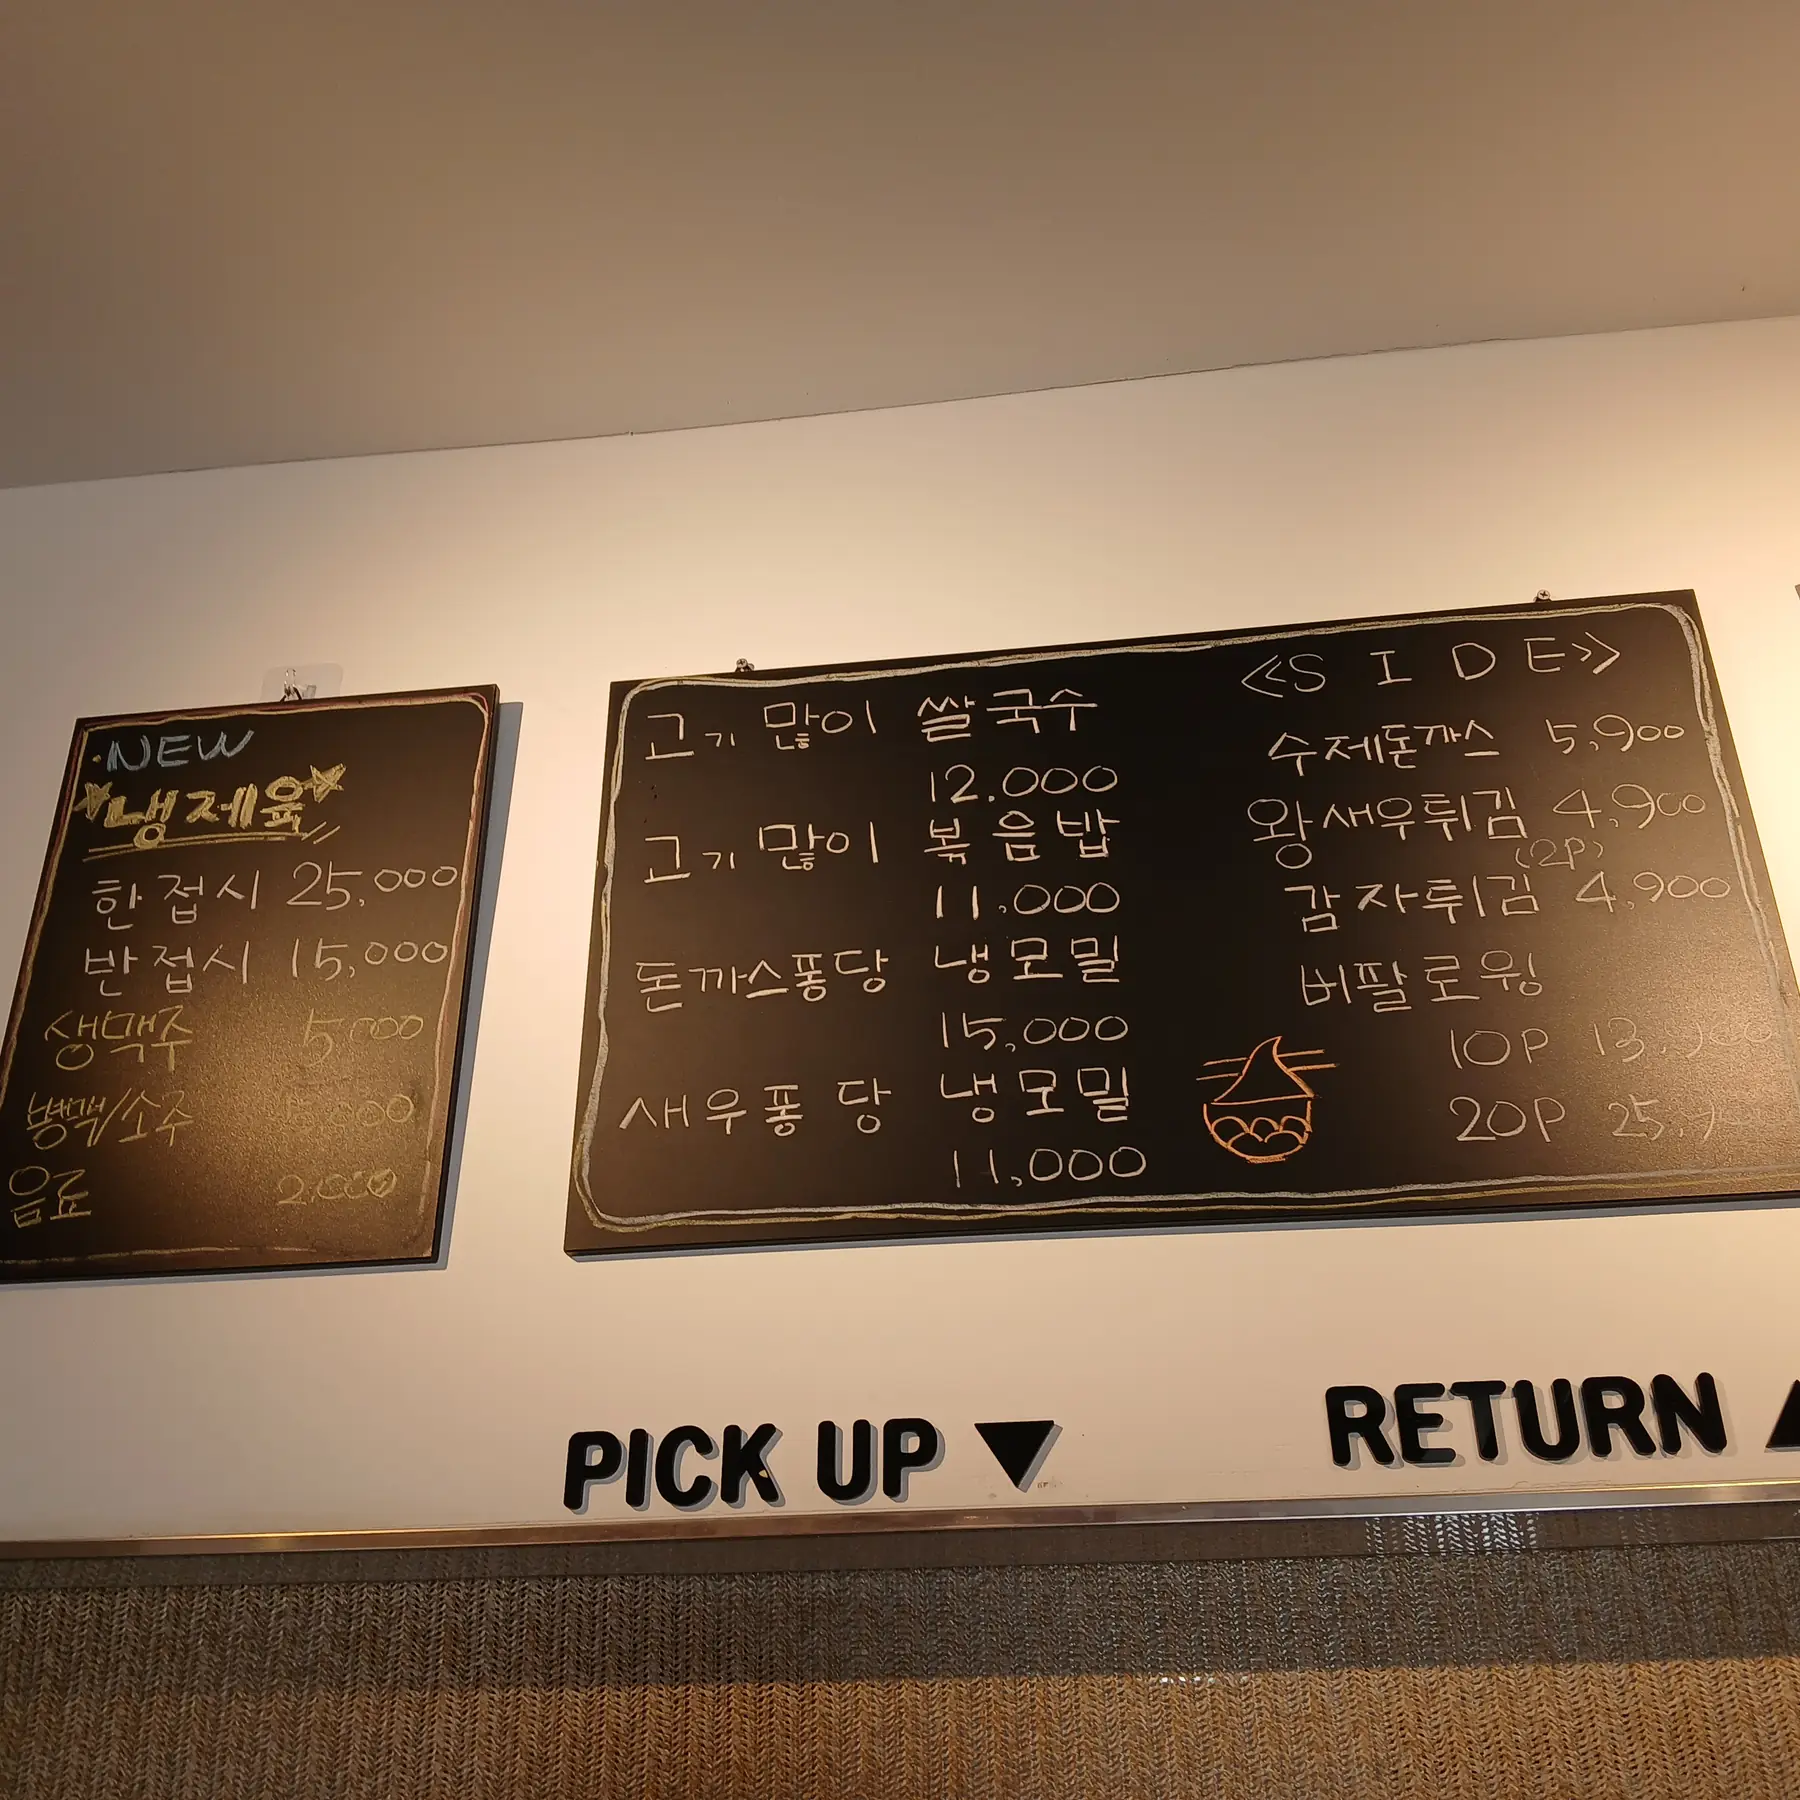 ·NEW
냉제육
한접시 25,000
반접시 15,000
생맥주 5,000
병맥/소주 5,000
음료 2.000
고기 많이 쌀국수
12.000
고기 많이 볶음밥
11.000
돈까스퐁당 냉모밀
15,000
새우퐁당 냉모밀
11,000
≪SIDE≫
수제돈까스 5,900
왕새우튀김 4,900
(2P)
감자튀김 4,900
버팔로윙
10P 13,900
20P
PICK UP ▼
RETURN